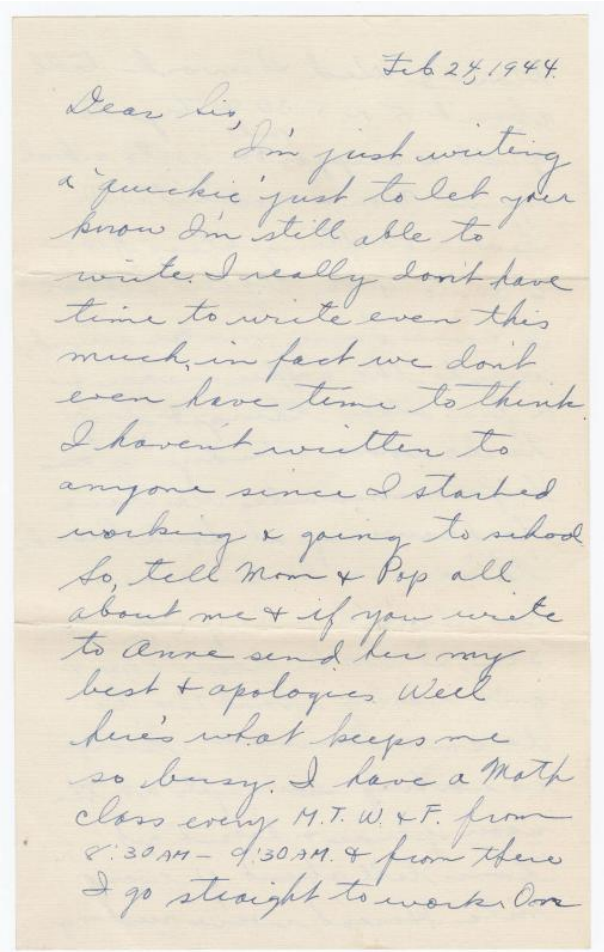 Feb. 24, 1944.
Dear Sis,
I'm just writing
a "quickie" just to let your
know I'm still able to
write. I really don't have
time to write even this
much, in fact we don't
even have time to think
I haven't written to
anyone since I started
working & going to school
So, tell Mom & Pop all
about me & if you write
to Anne send her my
best & apologies Well
here's what keeps me
so busy. I have a Math
class every M.T.W. & F. from
8:30 AM - 9:30 AM. & from there
I go straight to work. On